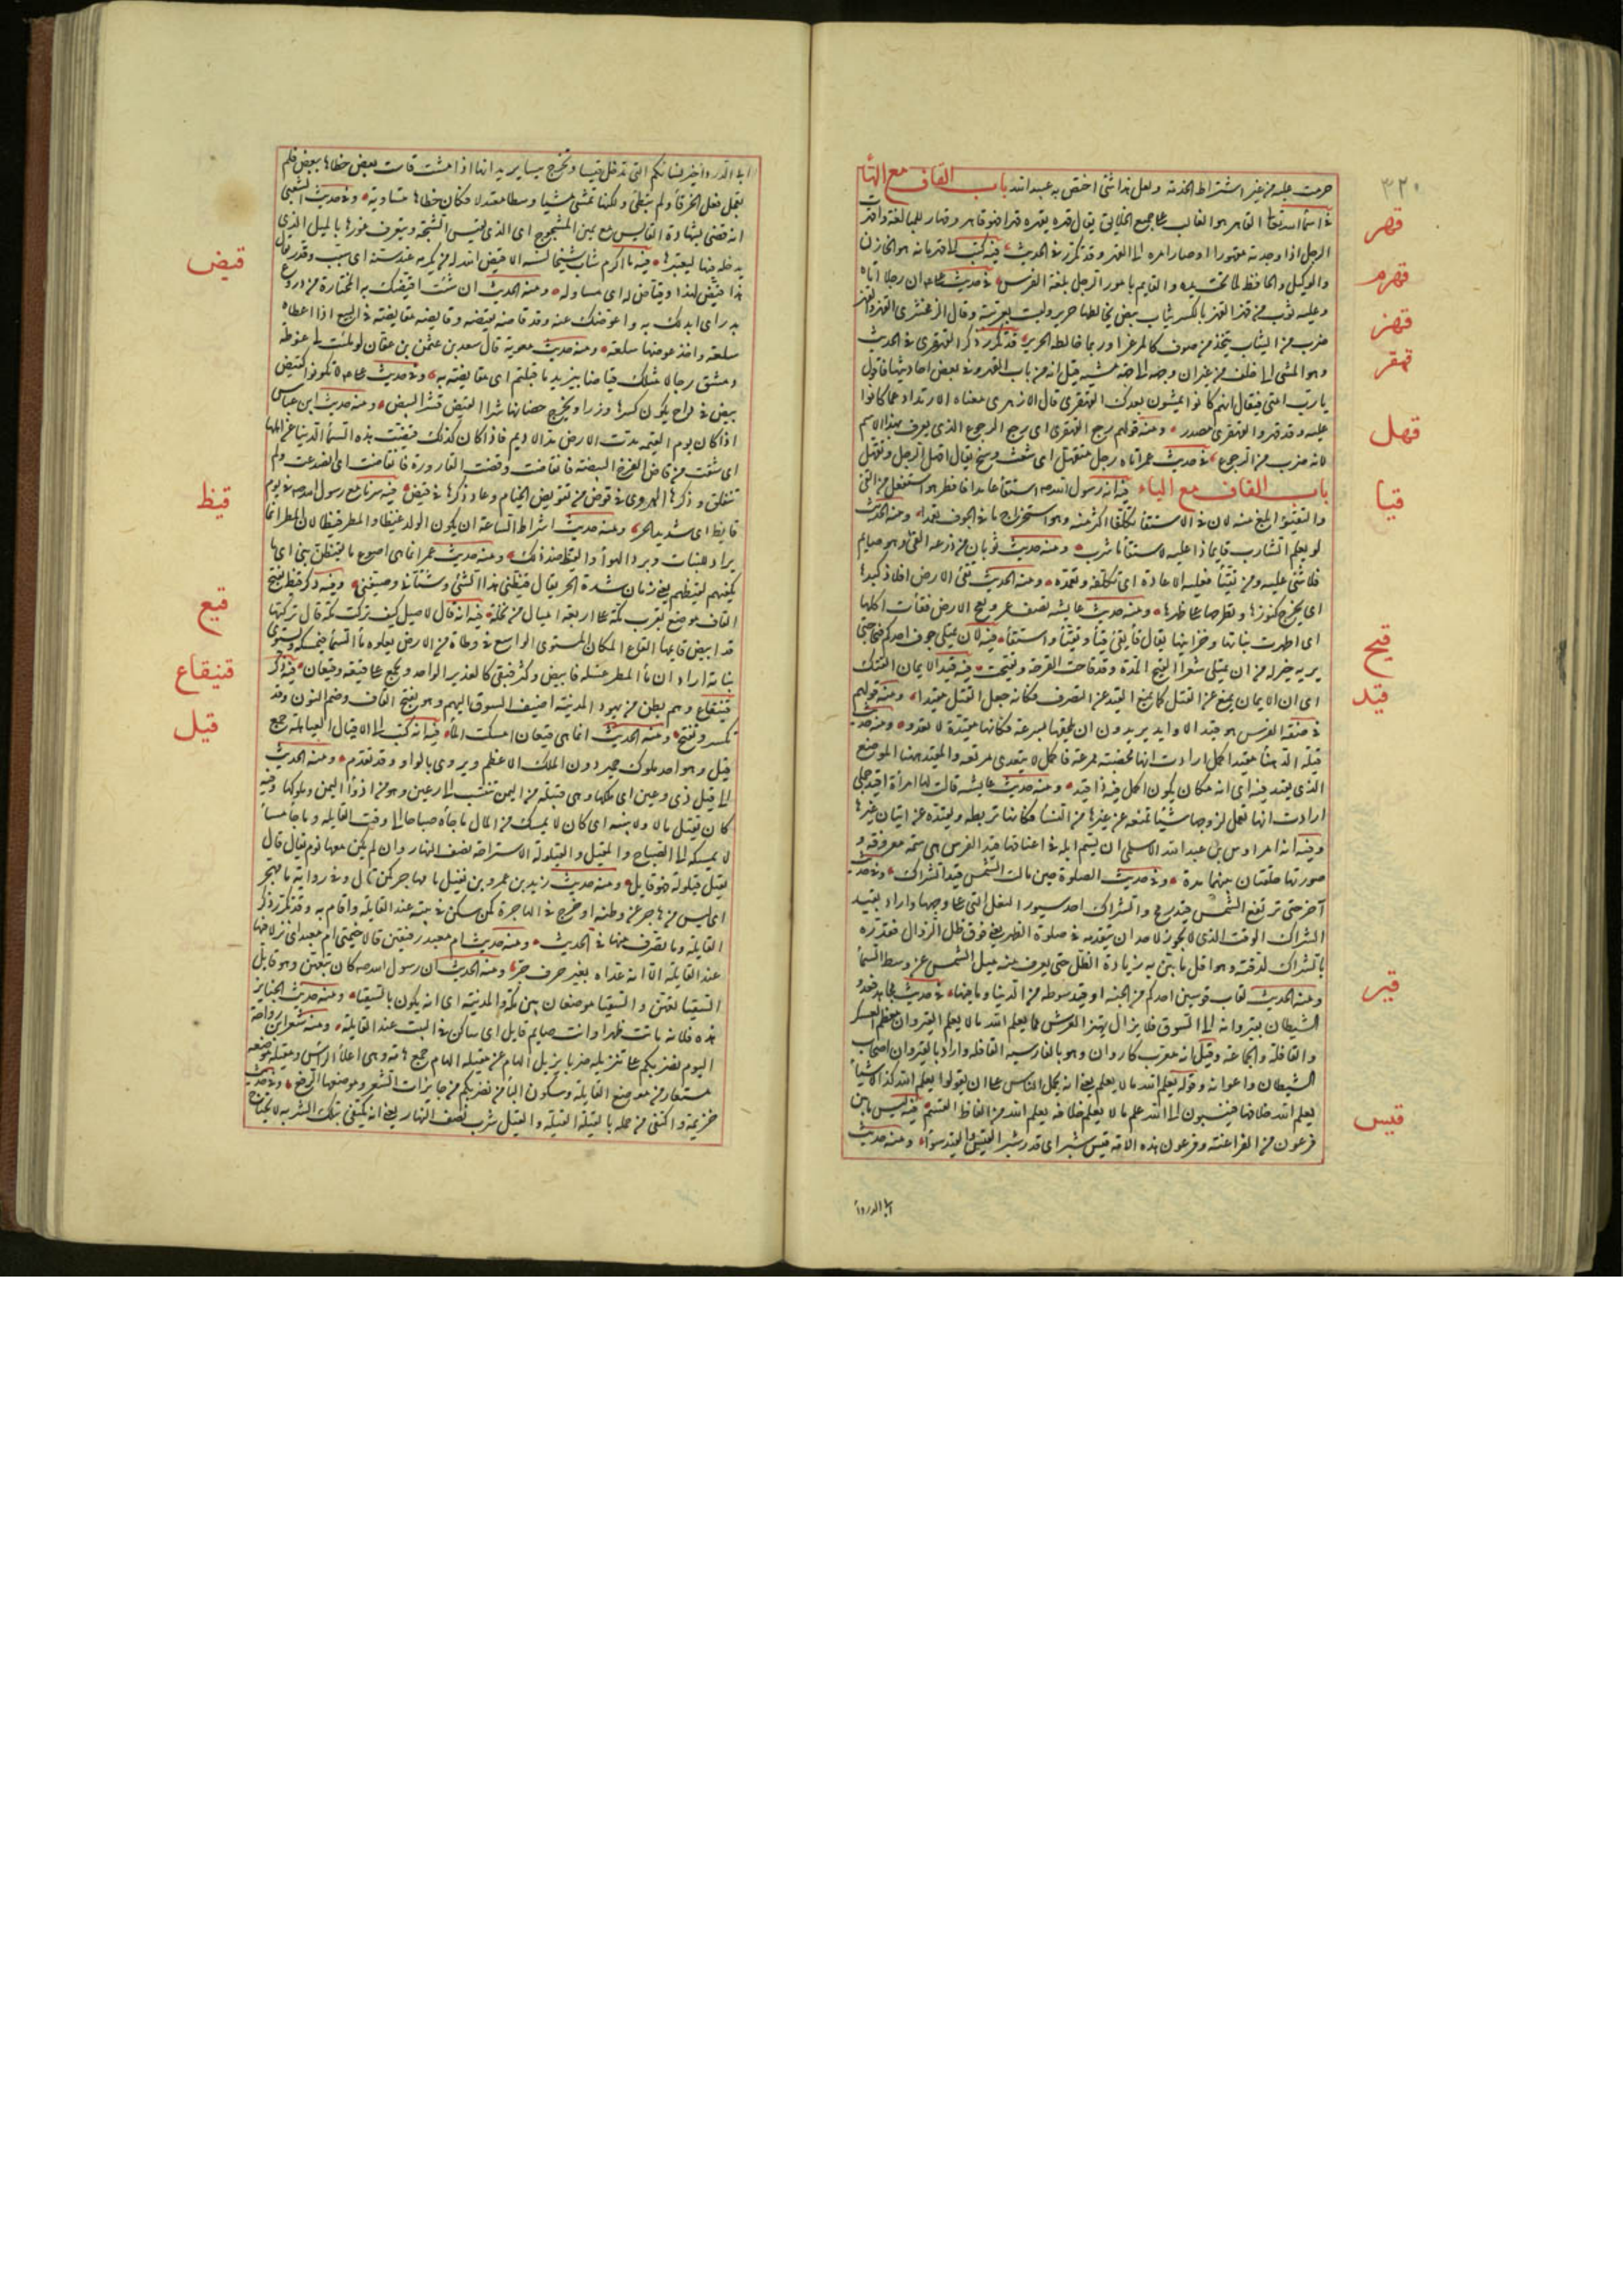 ٣٢٠
حرمت عليه من غير اشتراط الخدمة ولعل هذا شئ اختص به عبد الله باب القاف مع الهاء
قهر
في اسماء الله تعالى القاهر هو الغالب على جميع الخلائق يقال قهره يقهره قهرا فهو قاهر وقهار للمبالغة واقهرت
الرجل اذا وجدته مقهورا او صار امره الى القهر وقد تكرر في الحديث فيه كتب الى قهرمانه هو الخازن
قهرم
والوكيل والحافظ لما تحت يده والقايم بامور الرجل بلغة الفرس في حديث على ان رجلا اتاه
قهز
وعليه ثوب من قهز القهز بالكسر ثياب بيض يخالطها حرير وليست بعربية وقال الزمخشرى القهز والقهز
ضرب من الثياب يتخذ من صوف كالمرعزا وربما خالطه الحرير قد تكرر ذكر القهقرى في الحديث
قهقر
وهو المشى الى خلف من غير ان وجهه الى جهة مشيه قيل انه من باب القهر وفي بعض احاديثها فاقول
يا رب امتى فيقال انهم كانوا يمشون بعدك القهقرى قال الازهرى معناه الارتداد عما كانوا
عليه وقد قهقر والقهقرى مصدر ومنه قولهم رجع القهقرى اى رجع الرجوع الذى يعرف بهذا الاسم
قهل
لانه ضرب من الرجوع في حديث عمر اتاه رجل متقهل اى شعث وسخ يقال اقهل الرجل وتقهل
باب القاف مع الياء فيه ان رسول الله صم استقاء عامدا فافطر هو استفعل من القئ
قيا
والتقيؤ ابلغ منه لان في الاستقاء تكلفا اكثر منه وهو استخراج ما في الجوف تعمدا ومنه الحديث
لو يعلم الشارب قايما ماذا عليه لاستقاء ما شرب ومنه حديث ثوبان من ذرعه القئ وهو صايم
فلا شئ عليه ومن تقيأ فعليه الاعادة اى تكلفه وتعمده ومنه الحديث تقئ الارض افلاذ كبدها
اى يخرج كنوزها وتطرحها على ظهرها ومنه حديث عايشة تصف عمر وبعج الارض فقاءت اكلها
اى اظهرت نباتها وخزاينها يقال قاء يقئ قيأ وتقيأ واستقاء فيه لان يمتلى جوف احدكم قيحا حتى
قيح
يريه خير له من ان يمتلى شعرا القيح المدة وقد قاحت القرحة وتقيحت فيه قيد الايمان الفتك
قيد
اى ان الايمان يمنع عن القتل كما يمنع القيد عن التصرف فكانه جعل الفتك مقيدا ومنه قولهم
في صفة الفرس هو قيد الاوابد يريدون ان يلحقها بسرعة فكانها مقيدة لا تعدو ومنه حديث
قيلة الدهناء مقيد الجمل ارادت انها مخصبة ممرعة فالجمل لا يتعدى مرتعه والمقيد ههنا الموضع
الذى يقيد فيه اى انه مكان يكون الجمل فيه ذا قيد ومنه حديث عايشة قالت لها امرأة اقيد جملى
ارادت انها تعمل لزوجها شيئا تمنعه عن غيرها من النساء فكانها تربطه وتقيده عن اتيان غيرها
وفيه انه امر اوس بن عبد الله الاسلمى ان يسم ابله في اعناقها قيد الفرس هى سمة معروفة و
صورتها حلقتان بينهما مدة وفي حديث الصلوة حين مالت الشمس قيد الشراك وفي حديث
آخر حتى ترتفع الشمس قيد رمح والشراك احد سيور النعل التى على وجهها واراد بقيد
الشراك الوقت الذى لا يجوز لاحد ان يتقدمه في صلوة الظهر يعنى فوق ظل الزوال فقدره
بالشراك لدقته وهو اقل ما يتبين به زيادة الظل حتى يعرف منه ميل الشمس عن وسط السماء
ومنه الحديث لقاب قوسين احدكم من الجنة او قيد سوطه من الدنيا وما فيها في حديث مجاهد يغدو
قير
الشيطان بقيروانه الى السوق فلا يزال يهتز العرش مما يعلم الله ما لا يعلم القيروان معظم العسكر
والقافلة والجماعة وقيل انه معرب كاروان وهو بالفارسية القافلة واراد بالقيروان اصحاب
الشيطان واعوانه وقوله يعلم الله ما لا يعلم يعنى انه يحمل الناس على ان يقولوا يعلم الله كذا لاشياء
يعلم الله خلافها فينسبون الى الله علم ما لا يعلم خلافه يعلم الله من الفاظ القسم فيه ليس ما بين
قيس
فرعون من الفراعنة وفرعون هذه الامة قيس شبر اى قدر شبر القيس والقيد سواء ومنه حديث
ابى الدرداء
ابى الدرداء خير نسائكم التى تدخل قيسا وتخرج ميسا يريد انها اذا مشت قاست بعض خطاها ببعض فلم
تعجل فعل الخرقاء ولم تبطئ ولكنها تمشى مشيا وسطا معتدلا فكان خطاها متساوية وفي حديث الشعبى
انه قضى بشهادة القايس مع يمين المشجوج اى الذى يقيس الشجة ويتعرف غورها بالميل الذى
يدخله فيها ليعتبرها فيه ما اكرم شاب شيخا لسنه الا قيض الله له من يكرمه عند سنه اى سبب وقدر يقال
قيض
هذا قيض لهذا وقياض له اى مساو له ومنه الحديث ان شئت اقيضك به المختارة من دروع
بدر اى ابدلك به واعوضك عنه وقد قاضه يقيضه وقايضه مقايضة في البيع اذا اعطاه
سلعة واخذ عوضها سلعة ومنه حديث معوية قال سعد بن عثمن بن عفان لو ملئت لى غوطة
دمشق رجالا مثلك قياضا بيزيد ما قبلتهم اى مقايضة به وفي حديث على لا تكونوا كقيض
بيض في اداح يكون كسرها وزرا ويخرج حضانها شرا القيض قشر البيض ومنه حديث ابن عباس
اذا كان يوم القيمة مدت الارض مد الاديم فاذا كان كذلك قيضت هذه السماء الدنيا عن اهلها
اى شقت من قاض الفرخ البيضة فانقاضت وقضت القارورة فانقاضت اى انصدعت ولم
تنفلق وذكرها الهروى في قوض من تقويض الخيام وعاد ذكرها في قيض فيه سرنا مع رسول الله صم في يوم
قيظ
قايظ اى شديد الحر ومنه حديث اشراط الساعة ان يكون الولد غيظا والمطر قيظا لان المطر انما
يراد للنبات وبرد الهواء والقيظ ضد ذلك ومنه حديث عمر انما هى اصوع ما يقيظن بنى اى ما
يكفيهم لقيظهم يعنى زمان شدة الحر يقال قيظنى هذا الشئ وشتانى وصيفنى وفيه ذكر قيظ بفتح
القاف موضع بقرب مكة على اربعة اميال من نخلة فيه انه قال لاصيل كيف تركت مكة قال تركتها
قيع
قد ابيض قاعها القاع المكان المستوى الواسع في وطأة من الارض يعلوه ماء السماء فيمسكه ويستوى
نباته اراد ان ماء المطر غسله فابيض وكثر فبقى كالغدير الواحد ويجمع على قيعة وقيعان فيه ذكر
قنيقاع
قينقاع وهم بطن من يهود المدينة اضيف السوق اليهم وهو بفتح القاف وضم النون وقد
تكسر وتفتح ومنه الحديث انما هى قيعان امسكت الماء فيه انه كتب الى الاقيال العباهلة جمع
قيل
قيل وهو احد ملوك حمير دون الملك الاعظم ويروى بالواو وقد تقدم ومنه الحديث
الى قيل ذى رعين اى ملكها وهى قبيلة من اليمن تنسب الى رعين وهو من اذواء اليمن وملوكها وفيه
كان يقيل مالا ولا يبيته اى كان لا يمسك من المال ما جاءه صباحا الى وقت القايلة وما جاء مساء
لا يمسكه الى الصباح والمقيل والقيلولة الاستراحة نصف النهار وان لم يكن معها نوم يقال قال
يقيل قيلولة فهو قايل ومنه حديث زيد بن عمرو بن نفيل ما مهاجر كمن قال وفي رواية ما مهجر
اى ليس من هاجر عن وطنه او خرج في الهاجرة كمن سكن في بيته عند القايلة واقام به وقد تكرر ذكر
القايلة وما تصرف منها في الحديث ومنه حديث ام معبد رفيقين قالا خيمتى ام معبد اى نزلا فيها
عند القايلة الا انه عداه بغير حرف جر ومنه الحديث ان رسول الله صم كان بتعهن وهو قايل
السقيا تعهن والسقيا موضعان بين مكة والمدينة اى انه يكون بالسقيا ومنه حديث الجنايز
هذه فلانة ماتت ظهرا وانت صايم قايل اى ساكن في البيت عند القايلة ومنه شعر ابن رواحة
اليوم نضربكم على تنزيله ضربا يزيل الهام عن مقيله الهام جمع هامة وهى اعلى الراس ومقيله موضعه
مستعار من موضع القايلة وسكون الباء من نضربكم من جايزات الشعر وموضعها الرفع وفي حديث
خزيمة واكتفى من حمله بالقيلة القيلة والقيل شرب نصف النهار يعنى انه يكتفى بتلك الشربة لا يحتاج